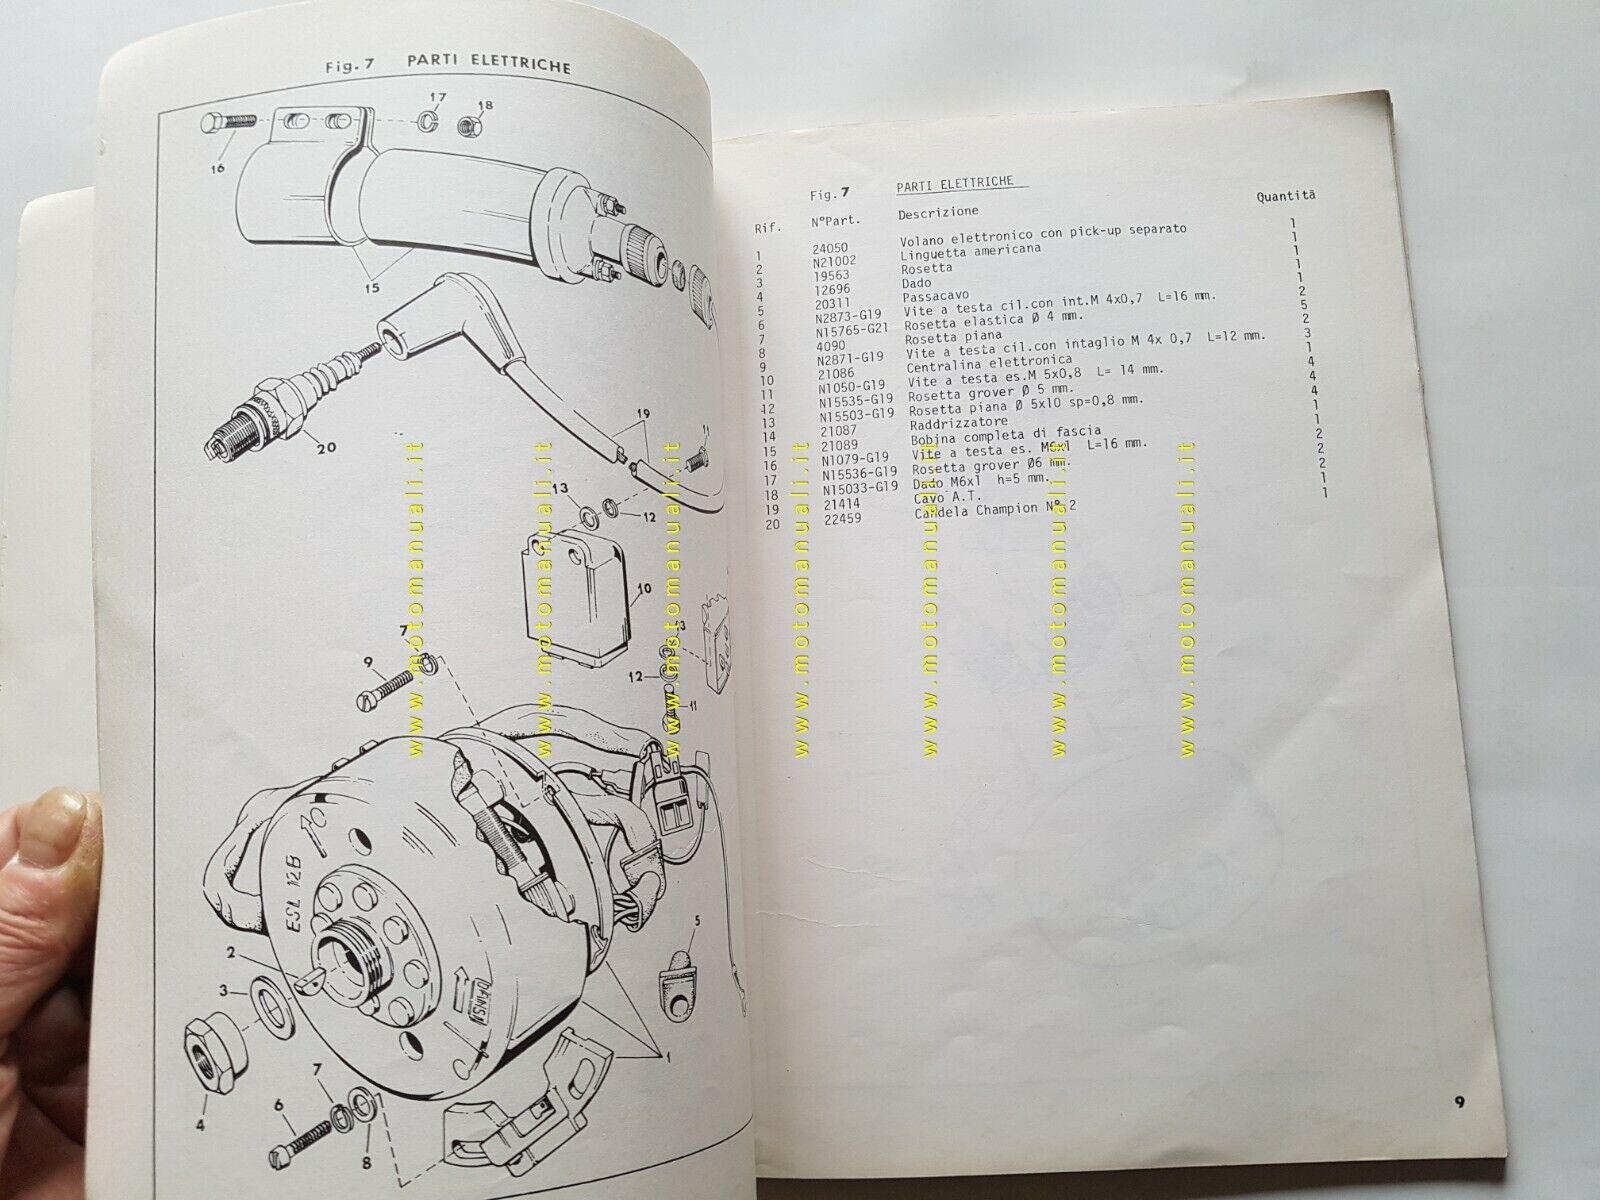 Fig. 7 PARTI ELETTRICHE
17
18
16
15
20
19
11
13
12
10
7
13
9
12
11
ESL 12B
DANSI
2
5
3
1
7
4
6
8
Fig. 7 PARTI ELETTRICHE
Rif. N°Part. Descrizione Quantità
1 24050 Volano elettronico con pick-up separato 1
2 N21002 Linguetta americana 1
3 19563 Rosetta 1
4 12696 Dado 1
5 20311 Passacavo 1
6 N2873-G19 Vite a testa cil.con int.M 4x0,7 L=16 mm. 2
7 N15765-G21 Rosetta elastica Ø 4 mm. 5
8 4090 Rosetta piana 2
9 N2871-G19 Vite a testa cil.con intaglio M 4x 0,7 L=12 mm. 3
10 21086 Centralina elettronica 1
11 N1050-G19 Vite a testa es.M 5x0,8 L= 14 mm. 4
12 N15535-G19 Rosetta grover Ø 5 mm. 4
13 N15503-G19 Rosetta piana Ø 5x10 sp=0,8 mm. 4
14 21087 Raddrizzatore 1
15 21089 Bobina completa di fascia 1
16 N1079-G19 Vite a testa es. M6x1 L=16 mm. 2
17 N15536-G19 Rosetta grover Ø6 mm. 2
18 N15033-G19 Dado M6x1 h=5 mm. 2
19 21414 Cavo A.T. 1
20 22459 Candela Champion N° 2 1
9
www.motomanuali.it
www.motomanuali.it
www.motomanuali.it
www.motomanuali.it
www.motomanuali.it
www.motomanuali.it
www.motomanuali.it